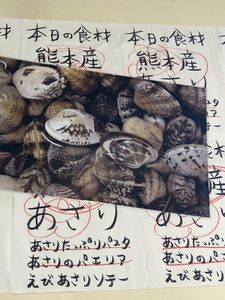 本日の食材
熊本産
あさり
あさりたっぷりパスタ
あさりのパエリア
えびあさりソテー
材
本日の食材
熊本産
あさり
あさりたっぷり
あさりのパエ
えびあさり
パスタ
リア
ソテー